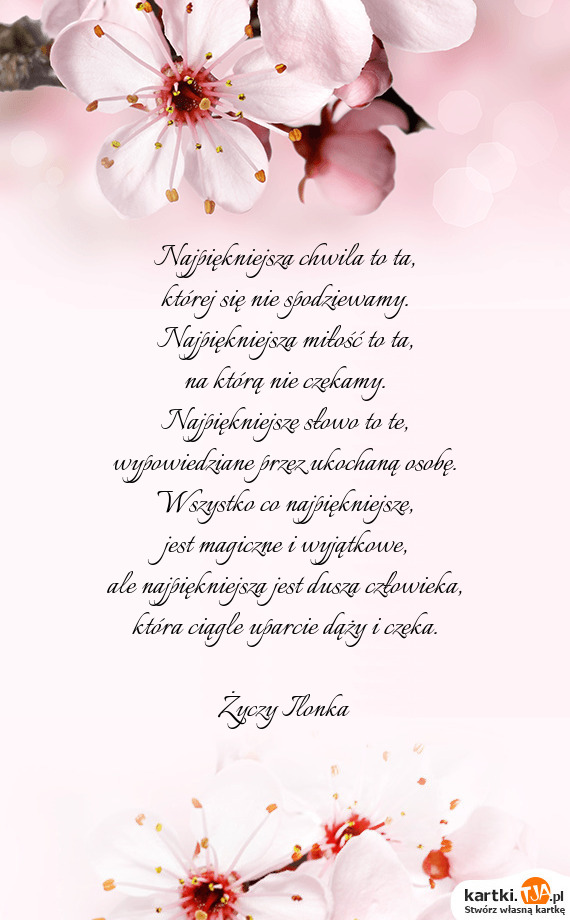 Najpiękniejsza chwila to ta,
której się nie spodziewamy.
Najpiękniejsza miłość to ta,
na którą nie czekamy.
Najpiękniejsze słowo to te,
wypowiedziane przez ukochaną osobę.
Wszystko co najpiękniejsze,
jest magiczne i wyjątkowe,
ale najpiękniejsza jest dusza człowieka,
która ciągle uparcie dąży i czeka.
Życzy Ilonka
kartki.TJA.pl
Stwórz własną kartkę